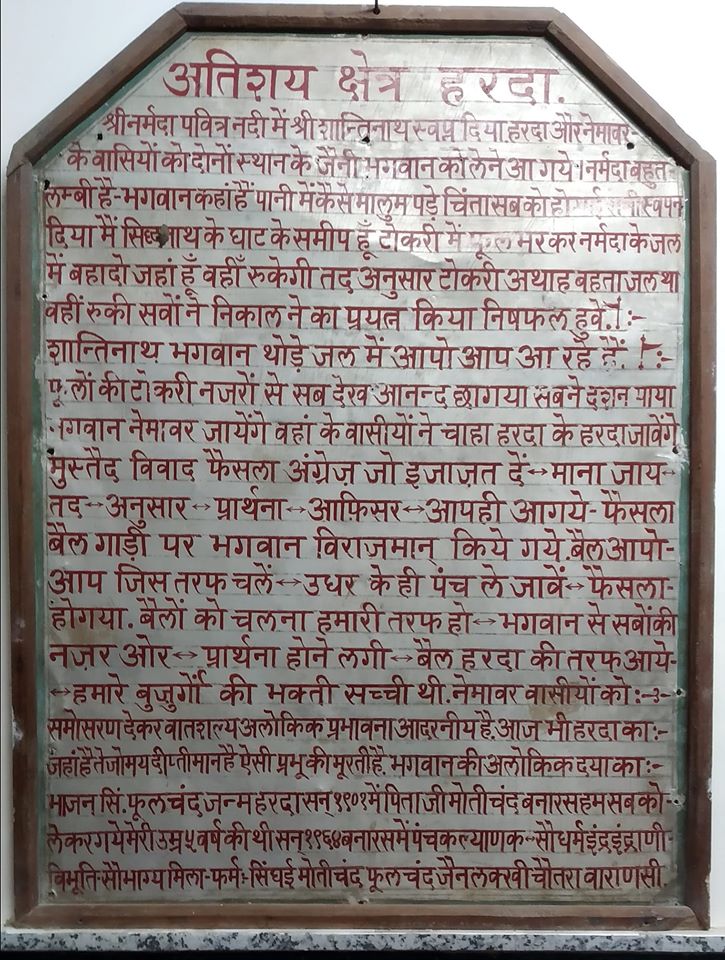 अतिशय क्षेत्र हरदा.
श्रीनर्मदा पवित्र नदी में श्री शान्तिनाथ स्वप्न दिया हरदा और नेमावर-
के वासियों को दोनों स्थान के जैनी भगवान को लेने आ गये । नर्मदा बहुत-
लम्बी है-भगवान कहां हैं पानी में कैसे मालुम पड़े चिंता सब को हो स्वपन
दिया मैं सिद्धनाथ के घाट के समीप हूँ टोकरी में फूल भर कर नर्मदा के जल
में बहादो जहां हूँ वहीं रुकेगी तद अनुसार टोकरी अथाह बहता जल था
वहीं रुकी सवों ने निकाल ने का प्रयत्न किया निषफल हुवे.।:-
शान्तिनाथ भगवान थोड़े जल में आपो आप आ रहे हैं. ।:-
फूलों की टोकरी नजरों से सब देख आनन्द छागया सबने दर्शन पाया
भगवान नेमावर जायेंगे वहां के वासीयों ने चाहा हरदा के हरदा जावेंगे
मुस्तैद विवाद फैसला अंग्रेज़ जो इजाज़त दें↔माना जाय-
तद↔अनुसार↔प्रार्थना↔आफ़िसर↔आपही आगये- फैसला
बैल गाड़ी पर भगवान विराजमान् किये गये.बैल आपो-
आप जिस तरफ चलें↔उधर के ही पंच ले जावें↔फैसला-
होगया. बैलों को चलना हमारी तरफ हो↔भगवान से सबोंकी
नज़र ओर↔प्रार्थना होने लगी↔बैल हरदा की तरफ आये-
↔हमारे बुजुर्गों की भक्ती सच्ची थी. नेमावर वासीयों को:-
समोसरण देकर वातशल्य अलोकिक प्रभावना आदरनीय है. आज भी हरदा का:-
जहां है तेजोमय दीप्तीमान है ऐसी प्रभू की मूरती है. भगवान की अलोकिक दया का:-
भाजन सिं. फूलचंद जन्म हरदा सन् १९०१ में पिता जी मोतीचंद बनारस हम सब को-
लेकर गये मेरी उम्र ५ वर्ष की थी सन् १९६४ बनारस में पंचकल्याणक-सौधर्म इंद्र इंद्राणी-
विभूति-सौभाग्य मिला-फर्मः-सिंघई मोतीचंद फूलचंद जैन लक्खी चौतरा वाराणसी